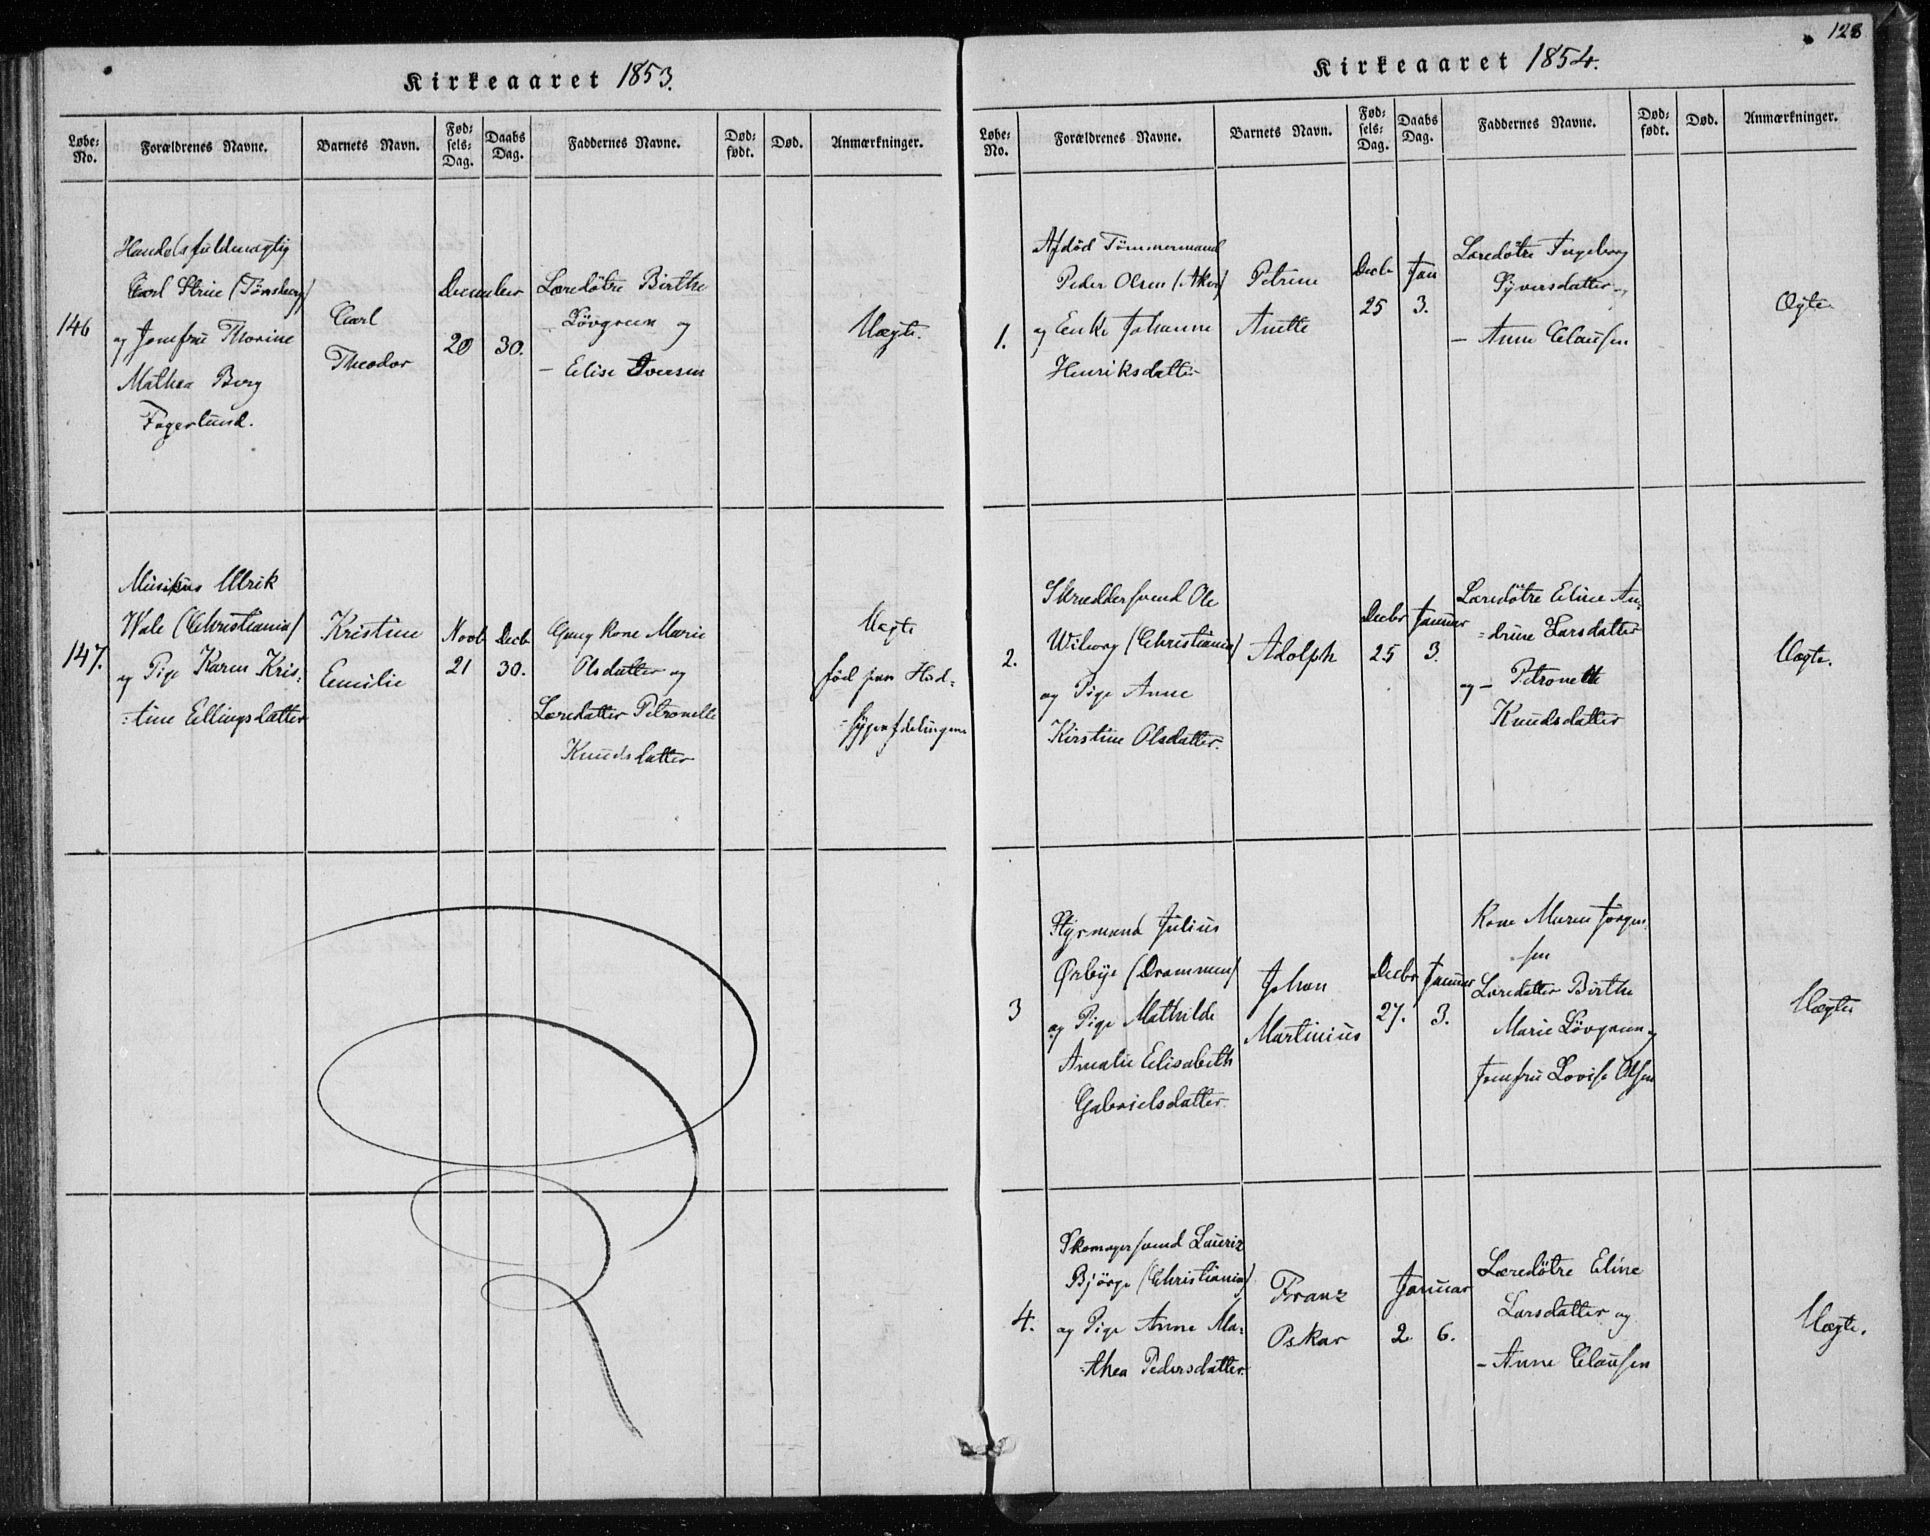 Kirkeaaret 1853.
Løbe-No. Forældrenes Navne. Barnets Navn. Fødsels-Dag. Daabs Dag. Faddernes Navne. Død-født. Død. Anmærkninger.
146
Handelsfuldmægtig
Carl Strue (Tønsberg)
og Jomfru Thorine
Mathea Berg
Fagerlund.
Carl
Theodor
December
20 30.
Læredøtre Birthe
Lövgreen og
– Elise Iversen
Uægte.
147.
Musikus Ulrik
Wale (Christiania)
og Pige Karen Kris-
=tine Ellingsdatter
Kristine
Emilie
Novb Decb
21 30.
Gang Kone Marie
Olsdatter og
Læredatter Petronelle
Knudsdatter
Uægte
fød paa Hud-
=sygeafdelingen
128
Kirkeaaret 1854.
Løbe-No. Forældrenes Navne. Barnets Navn. Fødsels-Dag. Daabs Dag. Faddernes Navne. Død-født. Død. Anmærkninger.
1.
Afdød Tømmermand
Peder Olsen (Aker)
og Enke Johanne
Henriksdatter
Petrine
Anette
Decb Jan
25 3.
Læredøtre Ingeborg
Syversdatter
– Anne Clausen
Ægte
2.
Skræddersvend Ole
Wiborg (Christiania)
og Pige Anne
Kirstine Olsdatter.
Adolph
Decbr Januar
25 3.
Læredøtre Eline An-
=drine Larsdatter
og – Petronelle
Knudsdatter
Uægte.
3
Styrmand Julius
Ørbye (Drammen)
og Pige Mathilde
Amalie Elisabeth
Gabrielsdatter.
Johan
Martinius
Decbr Januar
27. 3.
Kone Maren Jörgen
sen
Læredatter Birthe
Marie Lövgreen og
Jomfru Lovise Olsen
Uægte
4.
Skomagersvend Lauriz
Björge (Christiania)
og Pige Anne Ma-
=thea Pedersdatter
Franz
Oskar
Januar
2 6.
Læredøtre Eline
Larsdatter og
– Anne Clausen
Uægte.